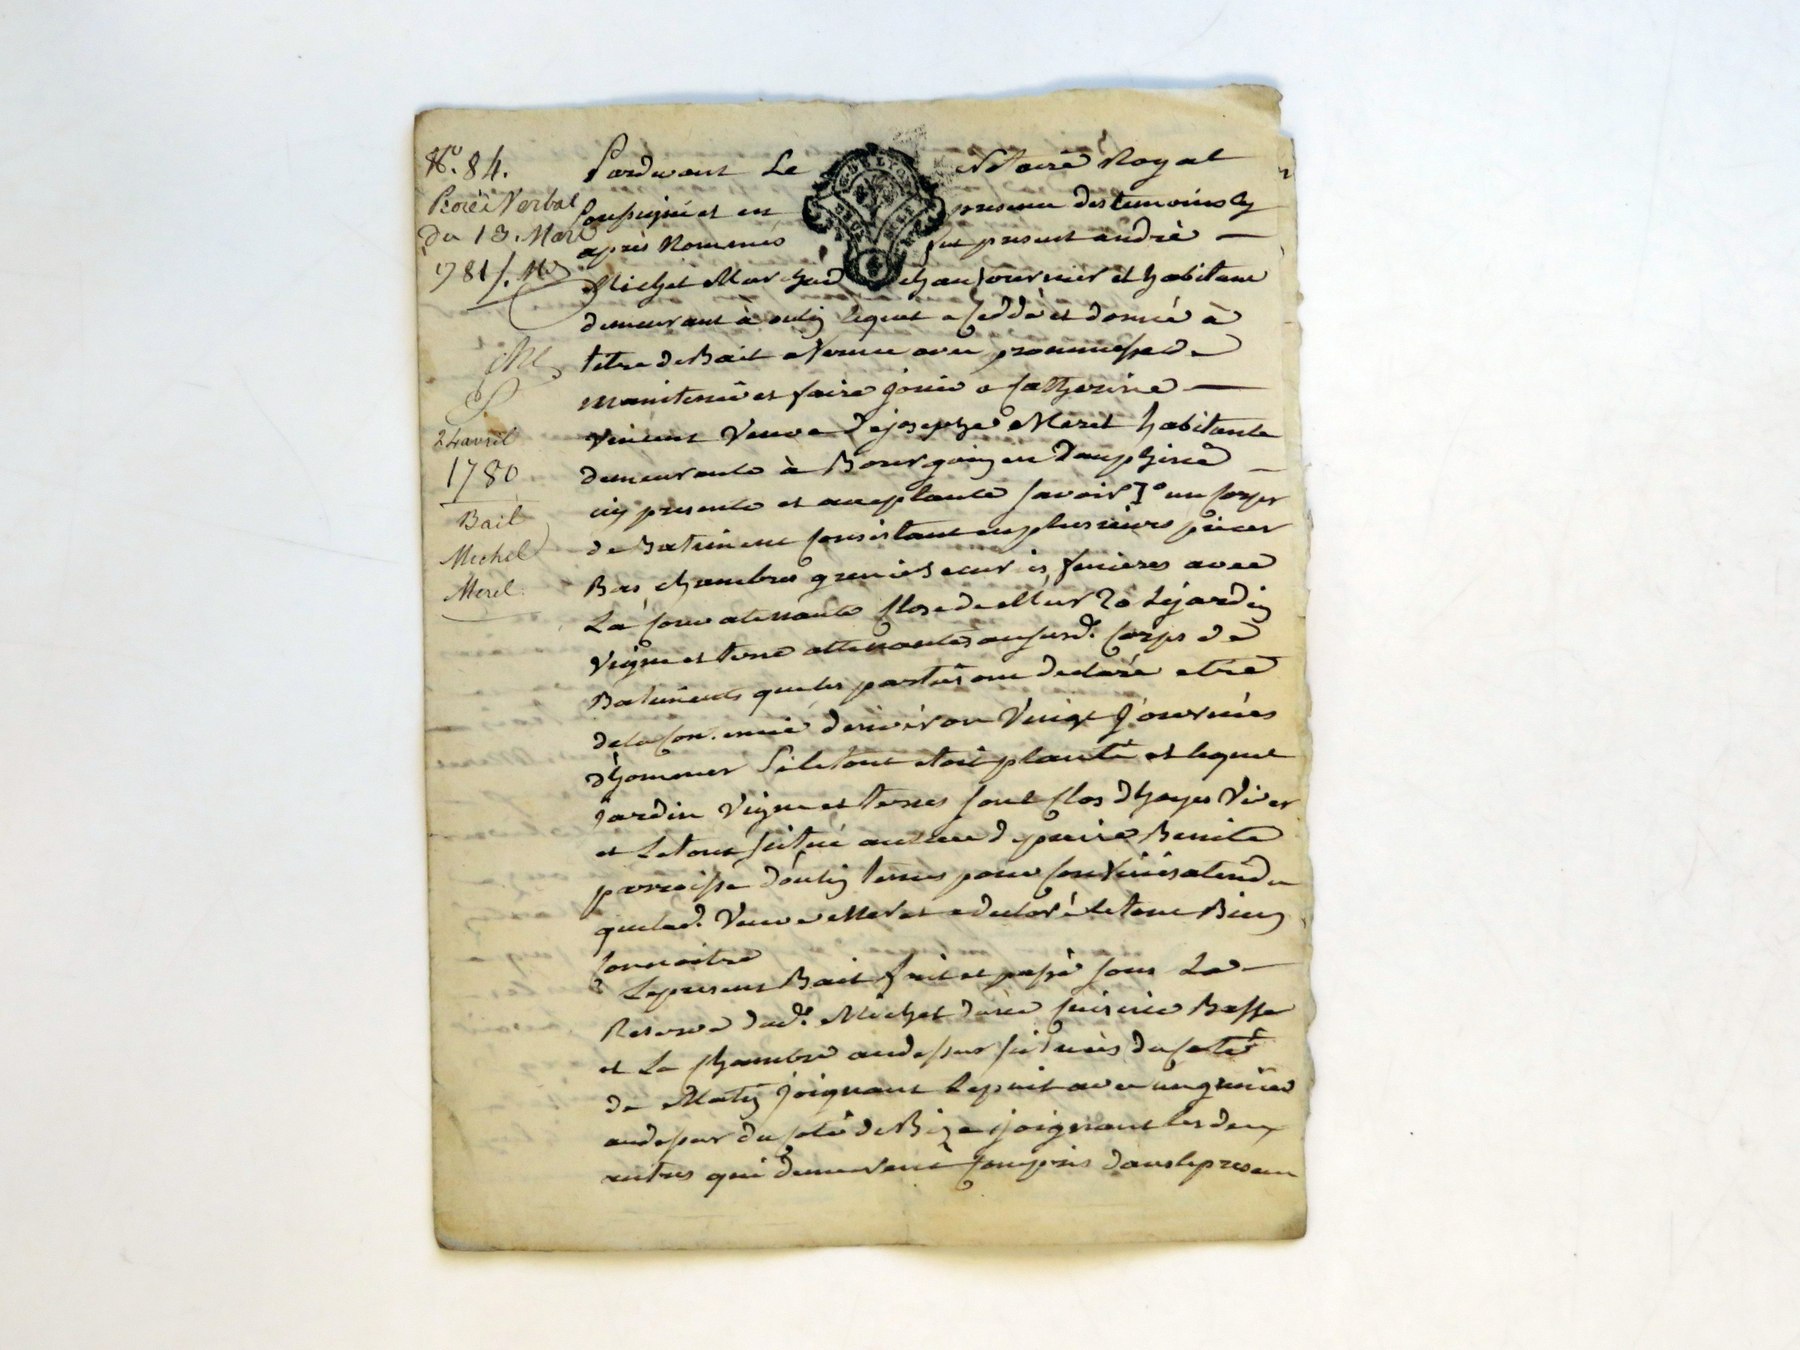 N.º 84.
Procès Verbal
du 13. Mars
1781
24 avril
1780
Bail
Michel
Merel
Pardevant Le Notaire Royal
soussigné et en presence des temoins cy
après Nommés fut present andré
Michel Marchand chaufournier et habitant
demeurant à oulin lequel a ceddé et donné à
titre de Bail a ferme avec promesse de
maintenir et faire jouir a Catherine
Vincent Veuve de joseph Merel habitante
demeurante à Bourgoin en Dauphiné
icy presente et acceptante savoir 1º un corps
de Batiment consistant en plusieurs pieces
Bas chambres grenier ecuries fenieres avec
La Cour atenante close de Mur 2º Le jardin
Vigne et terre attenantes aususd. corps de
Batiments que les parties ont declaré etre
de la contenue d'environ Vingt journées
d'hommes si le tout etoit planté et lequel
jardin Vigne et terres sont clos d'hayes Vives
et Le tout situé au lieu de pierre Benite
parroisse d'oulin atendu
que lad. Veuve Merel a declaré le tout Bien
connoitre
Le present Bail fait et passé sous La
Reserve dud. Michel d'une cuisine Basse
et La chambre au dessus situées du coté
de Matin joignant Le puit avec un grenier
au dessus du coté de Bize joignant les deux
autres qui demeurent compris dans le present